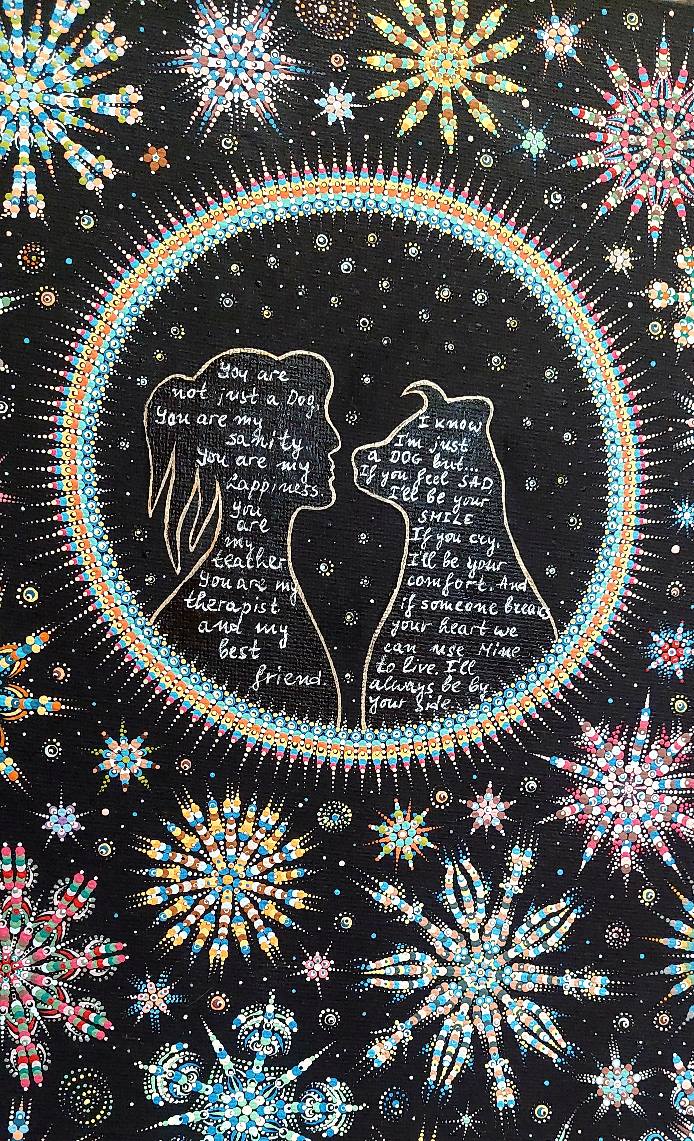 You are
not just a Dog
You are my
sanity
you are my
happiness
You
are
my
teather
You are my
therapist
and my
best
friend
I know
I'm just
a DOG but...
If you feel SAD
I'll be your
SMILE
If you cry,
I'll be your
comfort. And
if someone breaks
your heart we
can use Mine
to live. I'll
always be by
your side